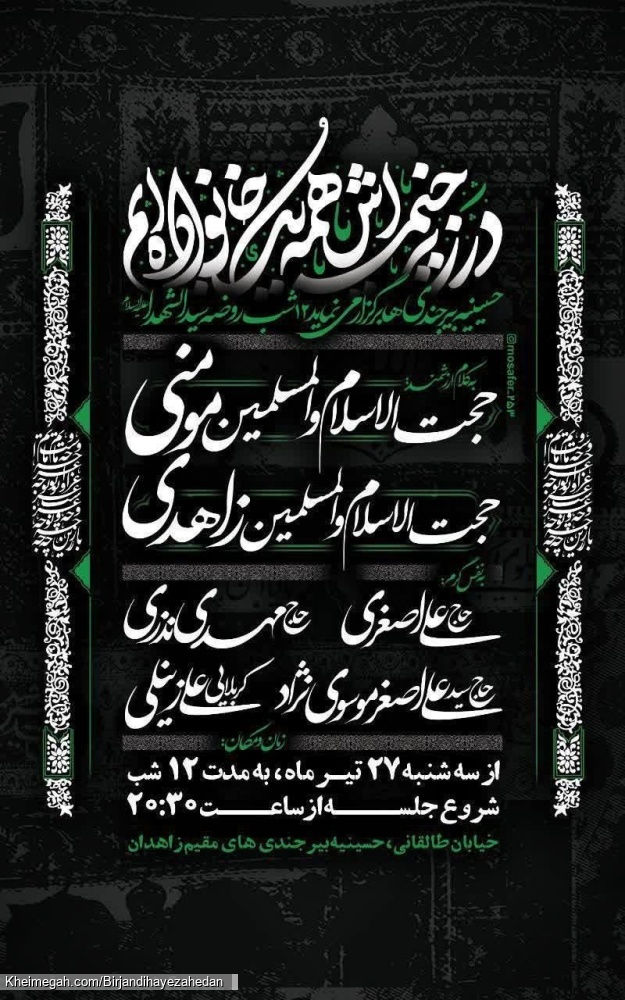 در زیر خیمه اش همه یک خانواده ایم
حسینیه بیرجندی ها برگزار می نماید ۱۲ شب روضه سیدالشهدا علیه السلام
@mosafer_۲۵۳
به کلام ارزشمند:
حجت الاسلام والمسلمین مومنی
حجت الاسلام والمسلمین زاهدی
به نفس گرم:
حاج علی اصغری حاج مهدی نذری
حاج سید علی اصغر موسوی نژاد کربلایی علی زینلی
زمان و مکان:
از سه شنبه ۲۷ تیر ماه، به مدت ۱۲ شب
شروع جلسه از ساعت ۲۰:۳۰
خیابان طالقانی، حسینیه بیرجندی های مقیم زاهدان
Kheimegah.com/Birjandihayezahedan